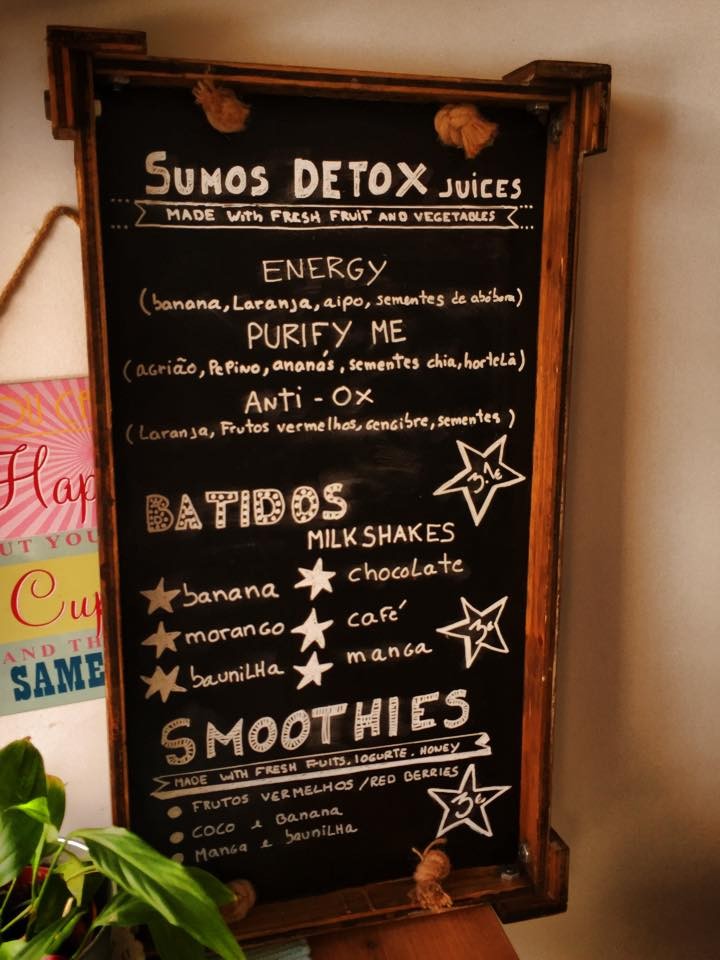 SUMOS DETOX JUICES
MADE with FRESH FRUIT AND VEGETABLES
ENERGY
(banana, Laranja, aipo, sementes de abóbora)
PURIFY ME
(agrião, Pepino, ananás, sementes chia, hortelã)
Anti-OX
(Laranja, Frutos vermelhos, gengibre, sementes)
3.1€
BATIDOS
MILKSHAKES
banana
chocolate
morango
café
3€
baunilha
manga
SMOOTHIES
MADE WITH FRESH FRUITS, IOGURTE. HONEY
FRUTOS VERMELHOS / RED BERRIES
3€
COCO e Banana
Manga e baunilha
Hap
UT YOU
Cu
AND TH
SAME